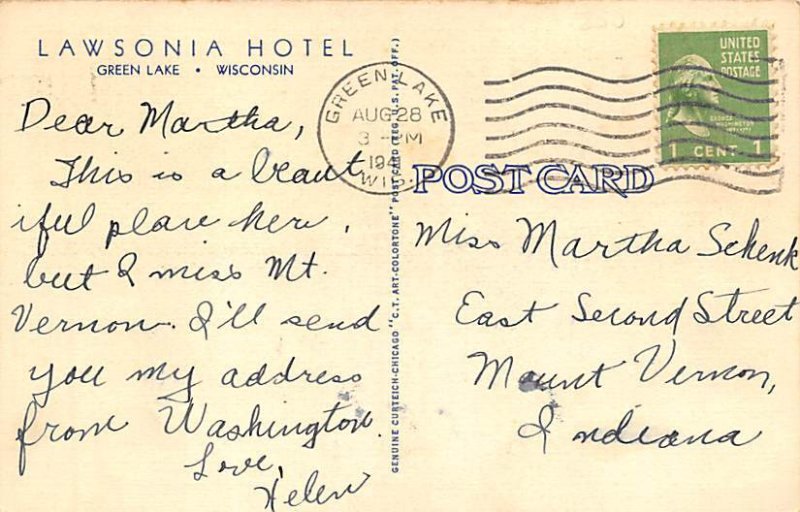 LAWSONIA HOTEL
GREEN LAKE • WISCONSIN
Dear Martha,
This is a beaut
iful place here,
but I miss Mt.
Vernon. I'll send
you my address
from Washington.
Love,
Helen
GENUINE CURTEICH-CHICAGO "C.T. ART-COLORTONE" POST CARD (REG. U.S. PAT. OFF.)
GREEN LAKE
AUG 28
3 - M
194
WIS.
UNITED
STATES
POSTAGE
GEORGE
WASHINGTON
1 CENT 1
POST CARD
Miss Martha Schenk
East Second Street
Mount Vernon,
Indiana